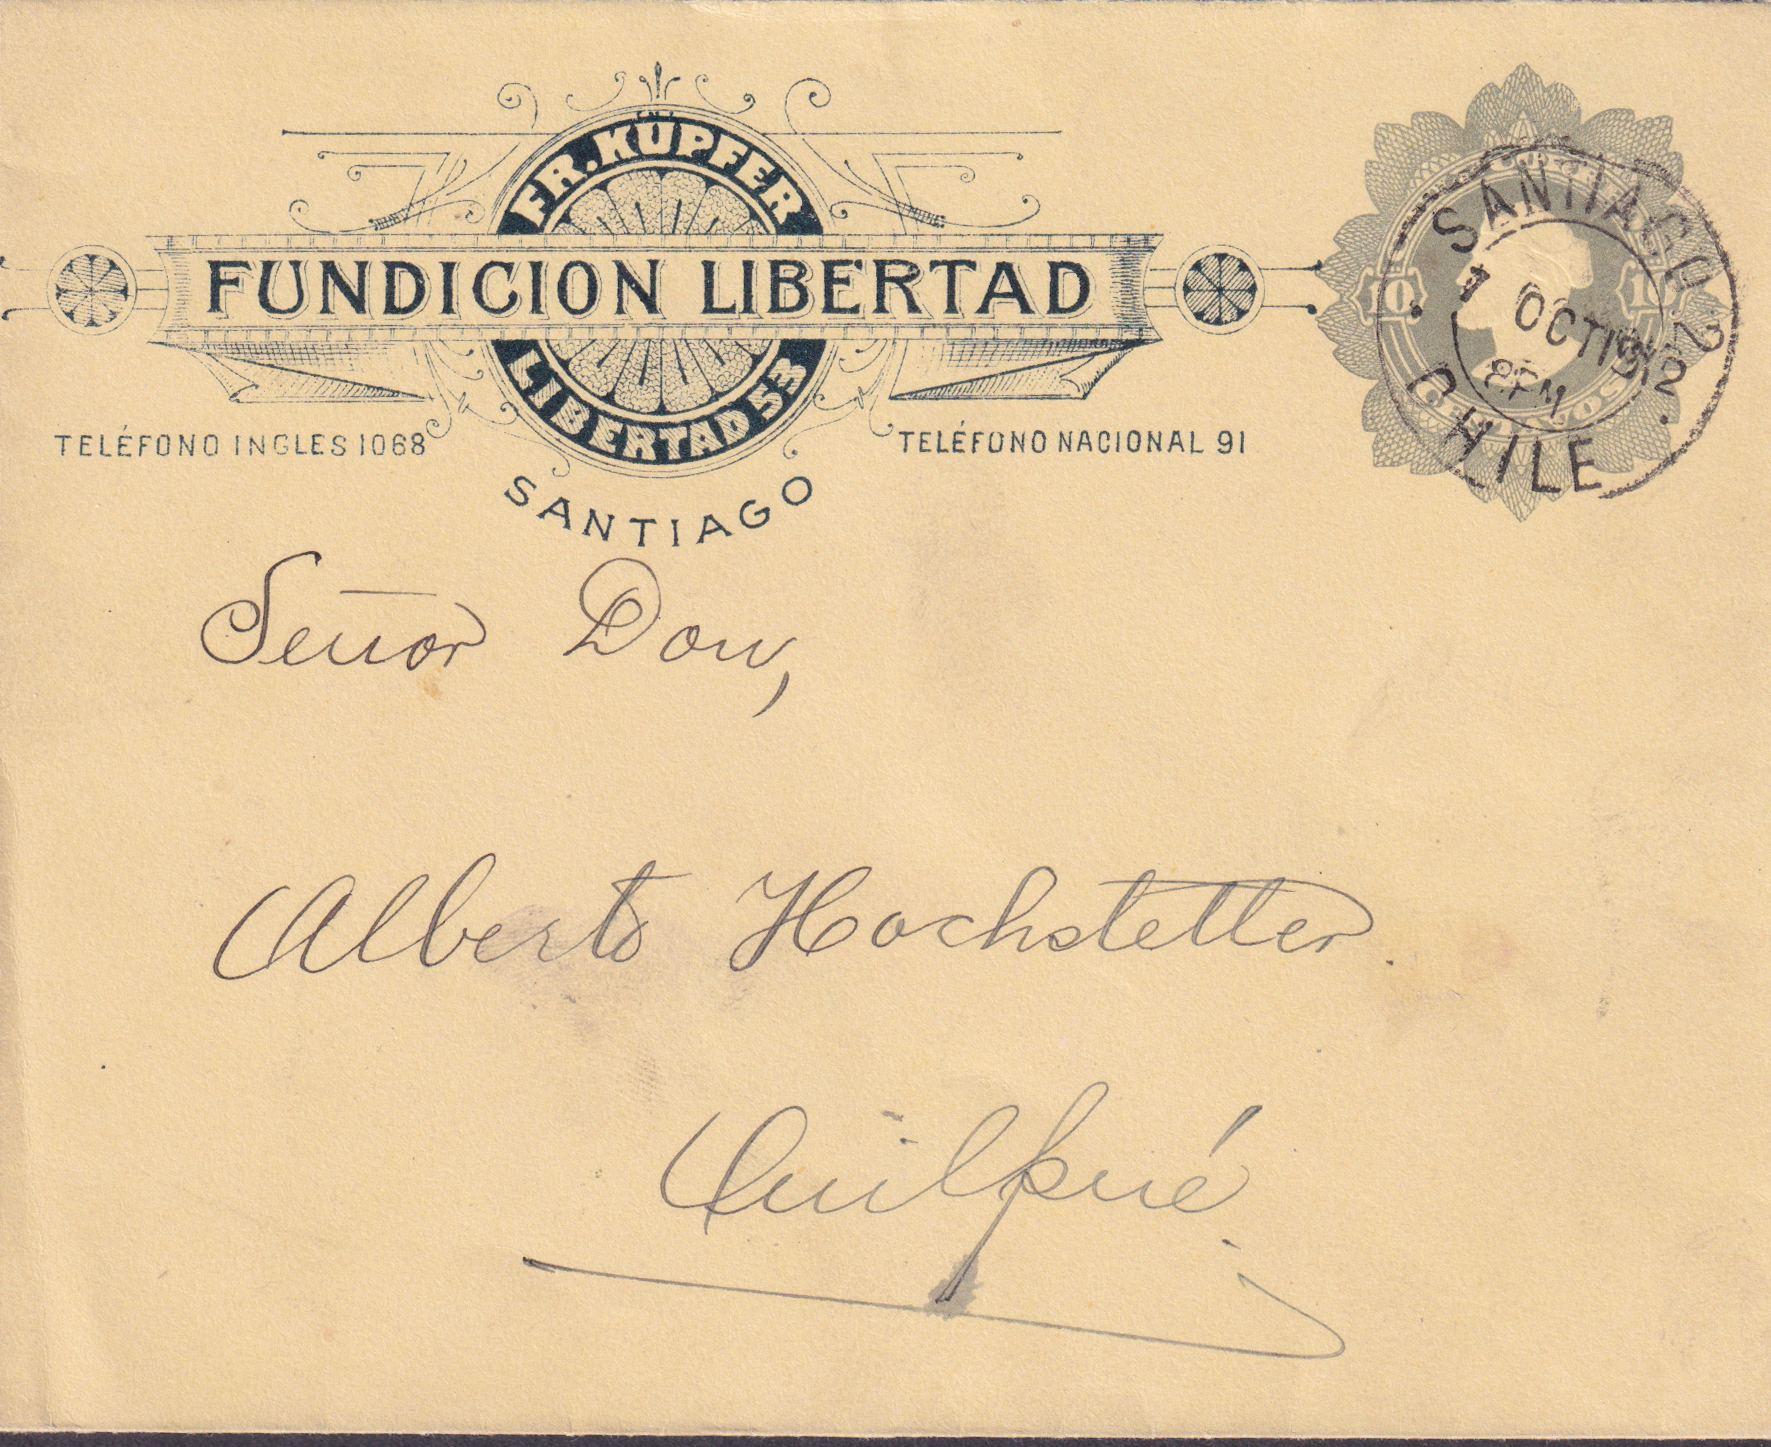 FR. KÜPFER
FUNDICION LIBERTAD
LIBERTAD 53
TELÉFONO INGLES 1068
TELÉFONO NACIONAL 91
SANTIAGO
10 10
CENTAVOS
SANTIAGO 2
1 OCT 1912
8 PM
CHILE
Señor Don,
Alberto Hochstetter.
Quilpué